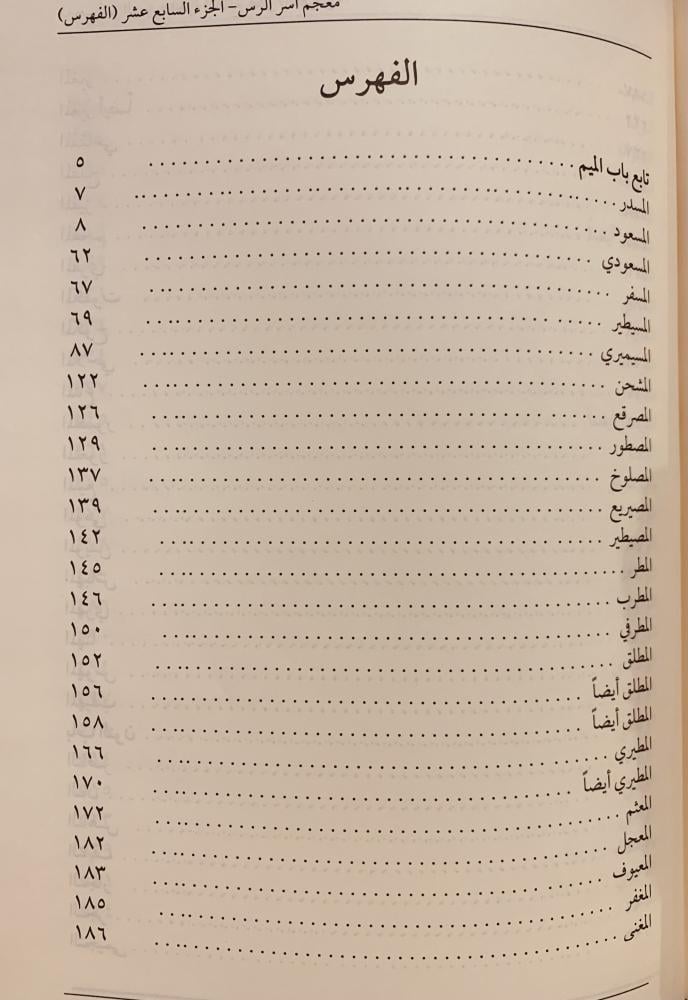 معجم أسر الرس- الجزء السابع عشر (الفهرس)
الفهرس
تابع باب الميم ........ ٥
المسدر ........ ٧
المسعود ........ ٨
المسعودي ........ ٦٢
المسفر ........ ٦٧
المسيطير ........ ٦٩
المسيميري ........ ٨٧
المشحن ........ ١٢٢
المصرقع ........ ١٢٦
المصطور ........ ١٢٩
المصلوخ ........ ١٣٧
المصيريع ........ ١٣٩
المصيطير ........ ١٤٢
المطر ........ ١٤٥
المطرب ........ ١٤٦
المطرفي ........ ١٥٠
المطلق ........ ١٥٢
المطلق أيضاً ........ ١٥٦
المطلق أيضاً ........ ١٥٨
المطيري ........ ١٦٦
المطيري أيضاً ........ ١٧٠
المعثم ........ ١٧٢
المعجل ........ ١٨٢
المعيوف ........ ١٨٣
المغفر ........ ١٨٥
المغنى ........ ١٨٦